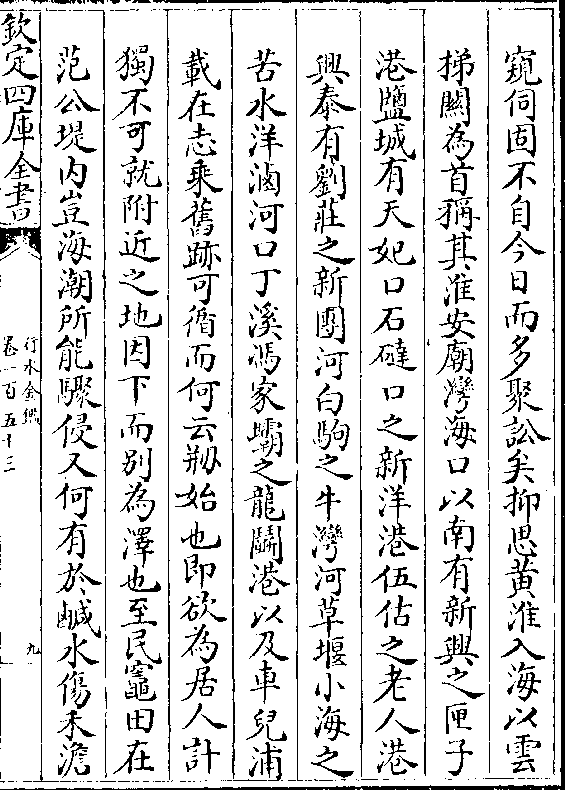 窺伺固不自今日而多聚訟矣抑思黄淮入海以雲
梯關為首稱其淮安廟灣海口以南有新興之匣子
港鹽城有天妃口石䃮口之新洋港伍佑之老人港
興泰有劉莊之新團河白駒之牛灣河草堰小海之
苦水洋滷河口丁溪馮家壩之龍鬭港以及車兒浦
載在志乘舊跡可循而何云剏始也即欲為居人計
獨不可就附近之地因下而别為澤也至民竈田在
范公堤内豈海潮所能驟侵又何有於鹹水傷禾澹
欽定四庫全書
行水金鑑
卷一百五十三
九